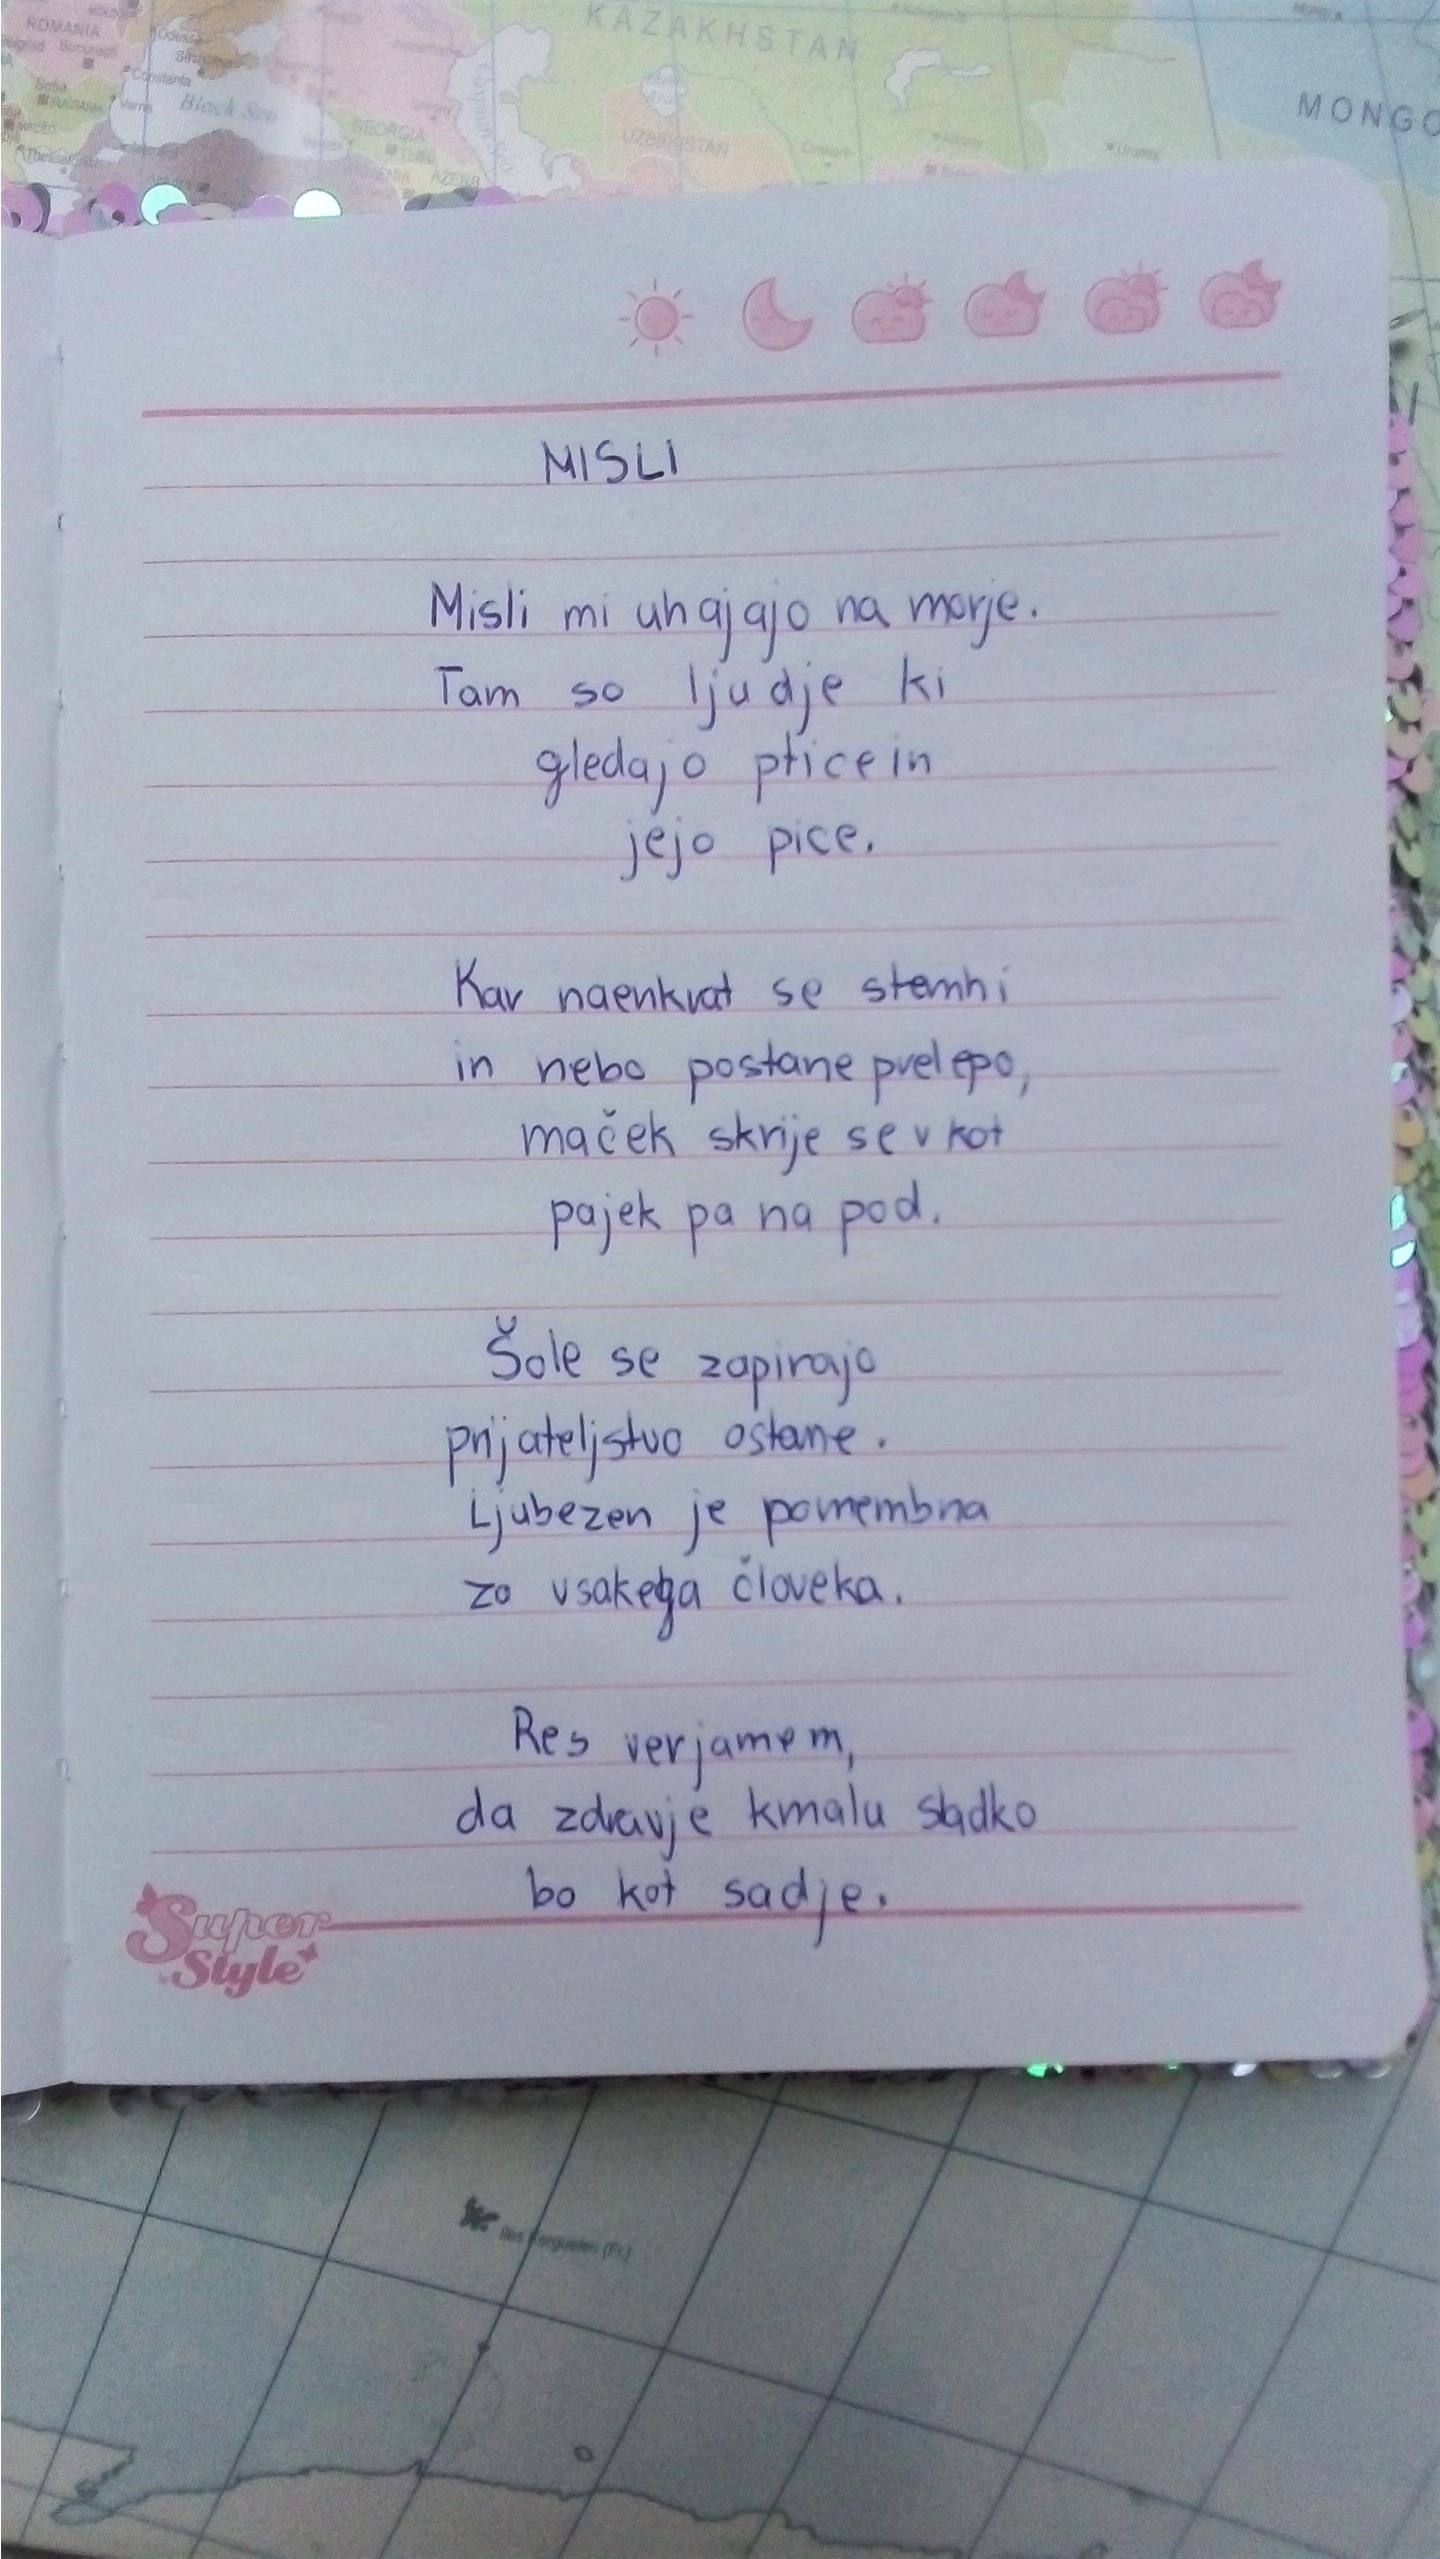 ROMANIA
Bucuresti
Constanta
Varna
Black Sea
GEORGIA
KAZAKHSTAN
UZBEKISTAN
MONGO
MISLI
Misli mi uhajajo na morje.
Tam so ljudje ki
gledajo ptice in
jejo pice.
Kar naenkrat se stemni
in nebo postane prelepo,
maček skrije se v kot
pajek pa na pod.
Šole se zapirajo
prijateljstvo ostane.
Ljubezen je pomembna
za vsakega človeka.
Res verjamem,
da zdravje kmalu sladko
bo kot sadje.
Super
Style
Iles Kerguelen (Fr.)